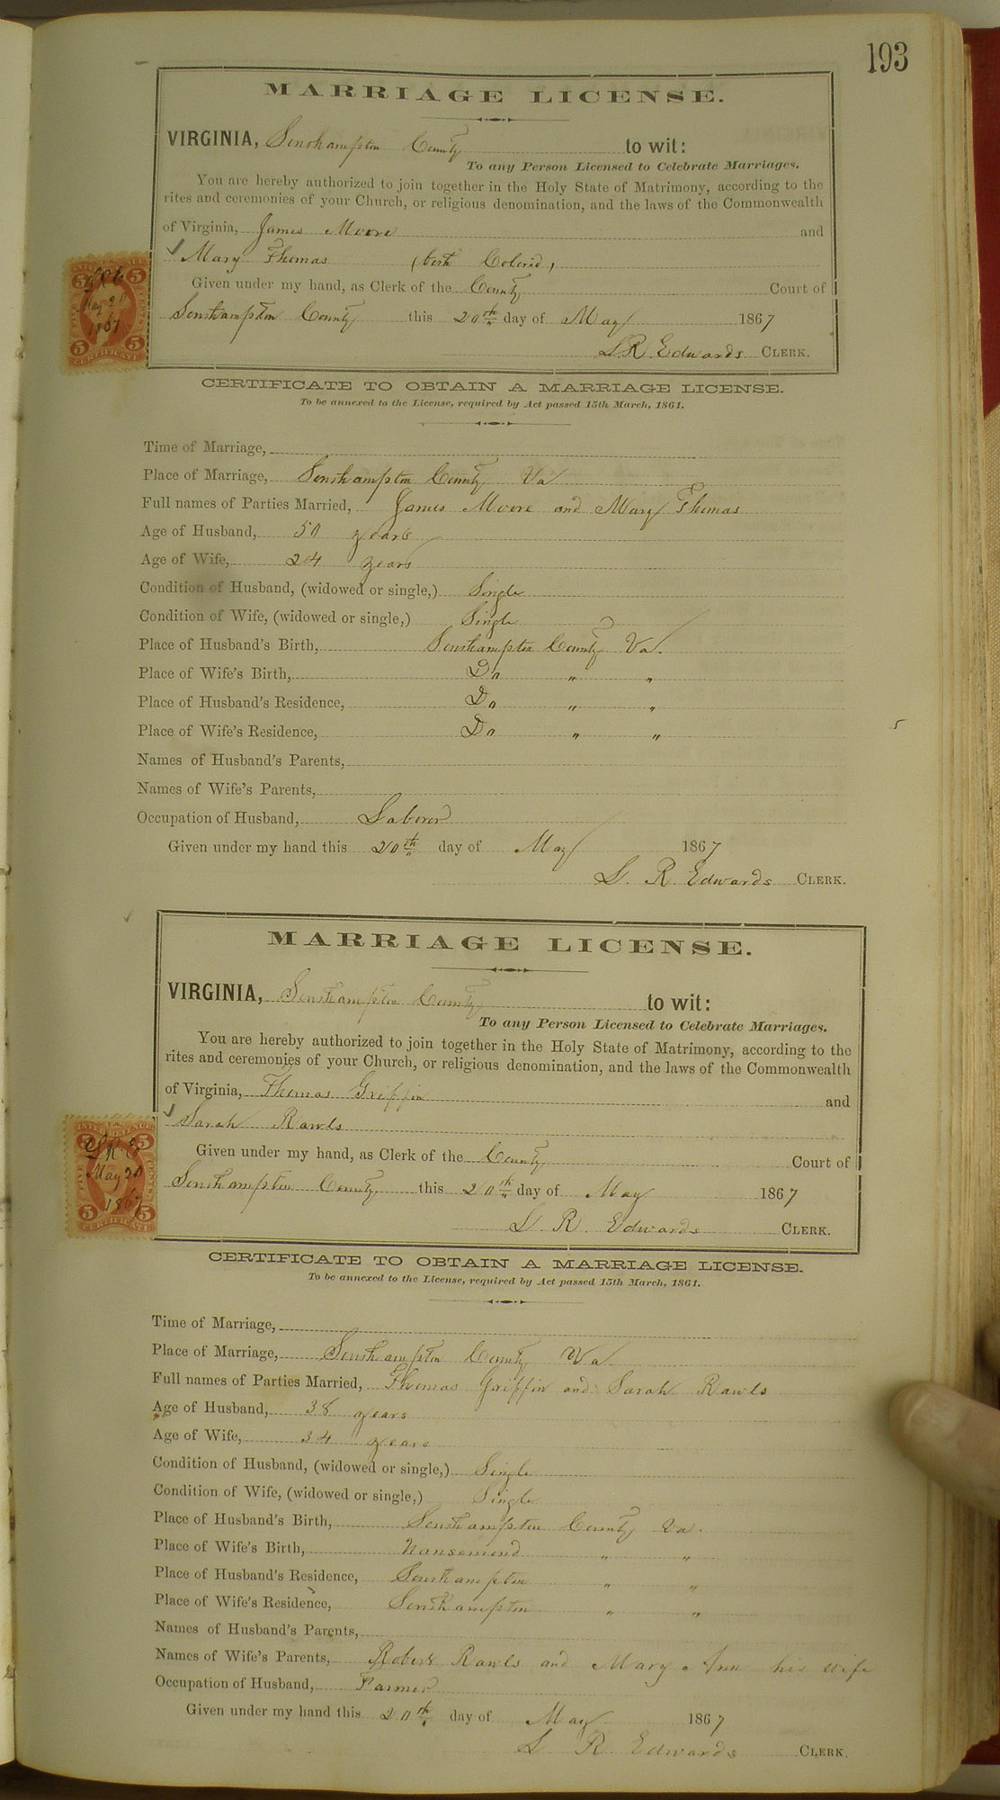 193
MARRIAGE LICENSE.
VIRGINIA, Southampton County to wit:
To any Person Licensed to Celebrate Marriages.
You are hereby authorized to join together in the Holy State of Matrimony, according to the
rites and ceremonies of your Church, or religious denomination, and the laws of the Commonwealth
of Virginia, James Moore and
Mary Thomas (both Colored)
Given under my hand, as Clerk of the County Court of
Southampton County this 20th day of May 1867
L R Edwards CLERK.
5 5
May 20
1867
5 5
CERTIFICATE
CERTIFICATE TO OBTAIN A MARRIAGE LICENSE.
To be annexed to the License, required by Act passed 15th March, 1861.
Time of Marriage,
Place of Marriage, Southampton County Va
Full names of Parties Married, James Moore and Mary Thomas
Age of Husband, 50 years
Age of Wife, 24 years
Condition of Husband, (widowed or single,) Single
Condition of Wife, (widowed or single,) Single
Place of Husband's Birth, Southampton County Va.
Place of Wife's Birth, Do " "
Place of Husband's Residence, Do " "
Place of Wife's Residence, Do " "
Names of Husband's Parents,
Names of Wife's Parents,
Occupation of Husband, Laborer
Given under my hand this 20th day of May 1867
L. R. Edwards CLERK.
MARRIAGE LICENSE.
VIRGINIA, Southampton County to wit:
To any Person Licensed to Celebrate Marriages.
You are hereby authorized to join together in the Holy State of Matrimony, according to the
rites and ceremonies of your Church, or religious denomination, and the laws of the Commonwealth
of Virginia, Thomas Griffin and
Sarah Rawls
Given under my hand, as Clerk of the County Court of
Southampton County this 20th day of May 1867
L R Edwards CLERK.
5 5
L R E
May 20
1867
5 5
CERTIFICATE
CERTIFICATE TO OBTAIN A MARRIAGE LICENSE.
To be annexed to the License, required by Act passed 15th March, 1861.
Time of Marriage,
Place of Marriage, Southampton County Va.
Full names of Parties Married, Thomas Griffin and Sarah Rawls
Age of Husband, 38 years
Age of Wife, 34 years
Condition of Husband, (widowed or single,) Single
Condition of Wife, (widowed or single,) Single
Place of Husband's Birth, Southampton County Va.
Place of Wife's Birth, Nansemond " "
Place of Husband's Residence, Southampton " "
Place of Wife's Residence, Southampton " "
Names of Husband's Parents,
Names of Wife's Parents, Robert Rawls and Mary Ann his wife
Occupation of Husband, Farmer
Given under my hand this 20th day of May 1867
L R Edwards CLERK.